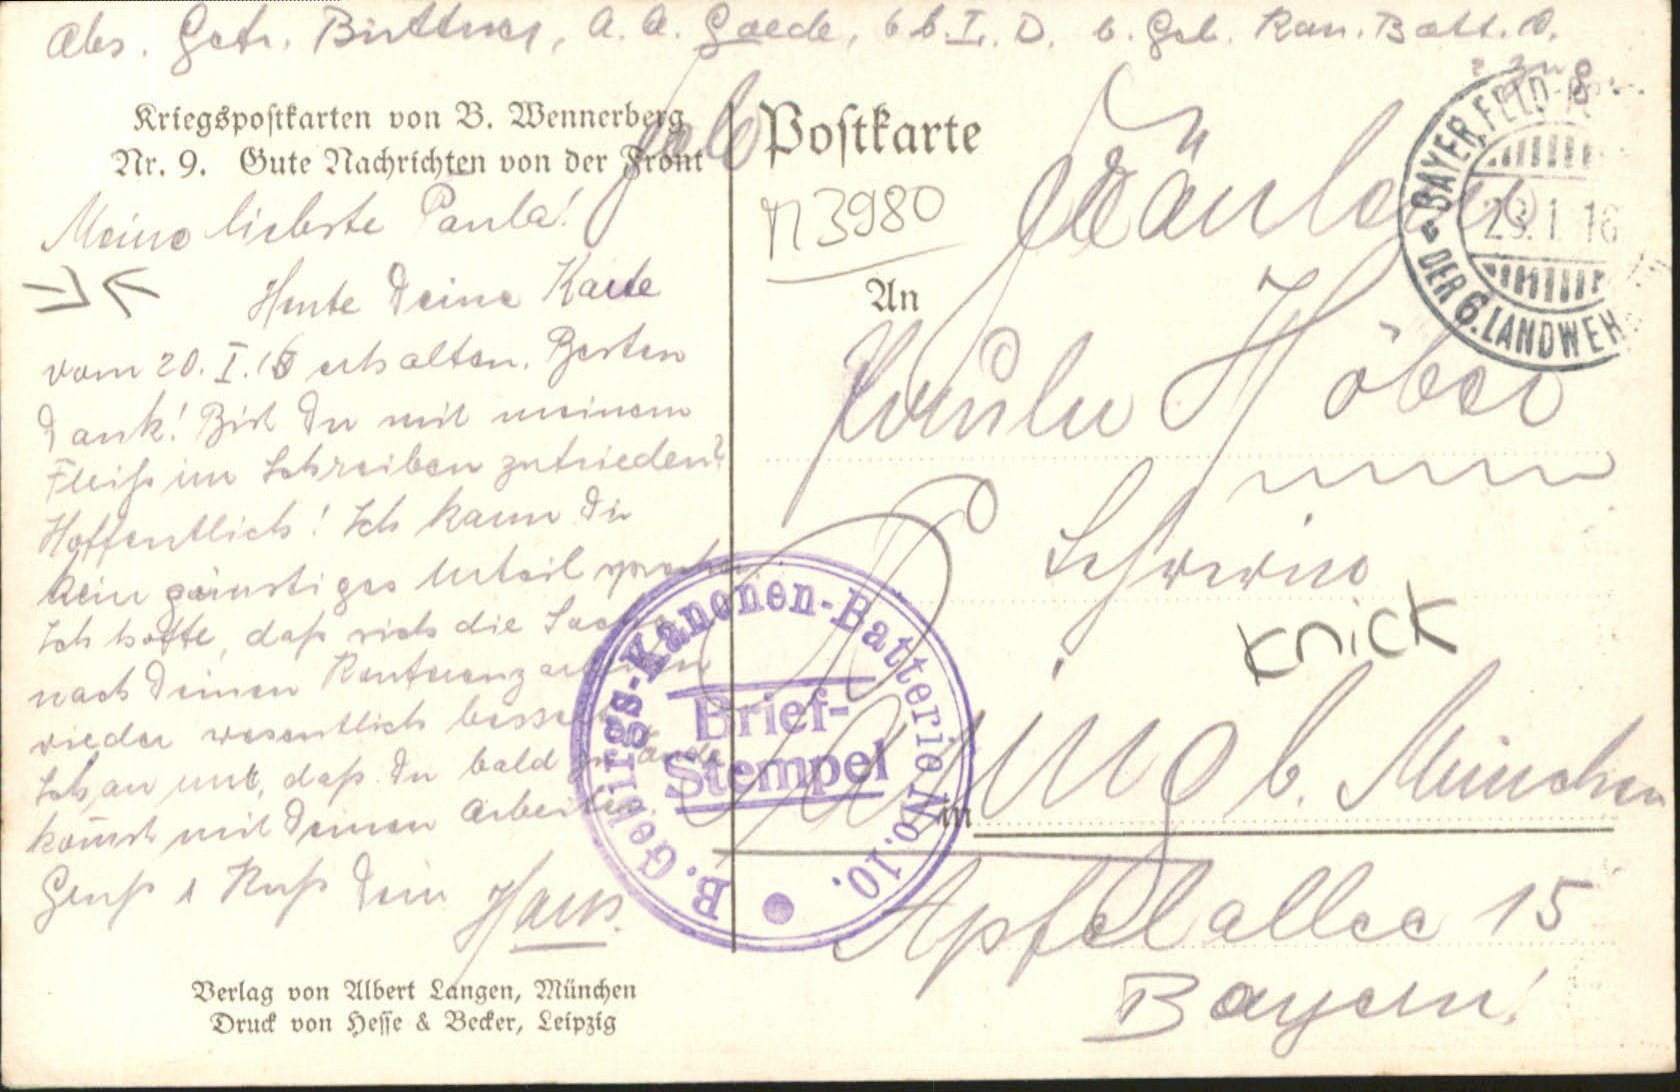 Abs. Gefr. Büttner, A. A. Gaede, 6. b. L. D. b. Geb. Kan. Batt. 10.
2. Zug
Kriegspostkarten von B. Wennerberg
Nr. 9. Gute Nachrichten von der Front
Meine liebste Paula!
Heute Deine Karte
vom 20. I. 16 erhalten. Besten
Dank! Bist Du mit meinem
Fleiß im Schreiben zufrieden?
Hoffentlich! Ich kann Dir
kein günstiges Urteil sprechen.
Ich hoffe, daß sich die Sache
nach Deinen Konferenzarbeiten
wieder wesentlich bessert.
daß Du bald zu Ende
kommst mit Deinen Arbeiten.
Gruß & Kuß Dein
Hans.
Verlag von Albert Langen, München
Druck von Hesse & Becker, Leipzig
Postkarte
N 3980
An
Fräulein
Paula Höber
Knick
Pasing b. München
in
Apfelallee 15
Bayern!
BAYER. FELD-P
23. 1. 16
DER 6. LANDWEH
B. Gebirgs-Kanonen-Batterie No. 10.
Brief-
Stempel